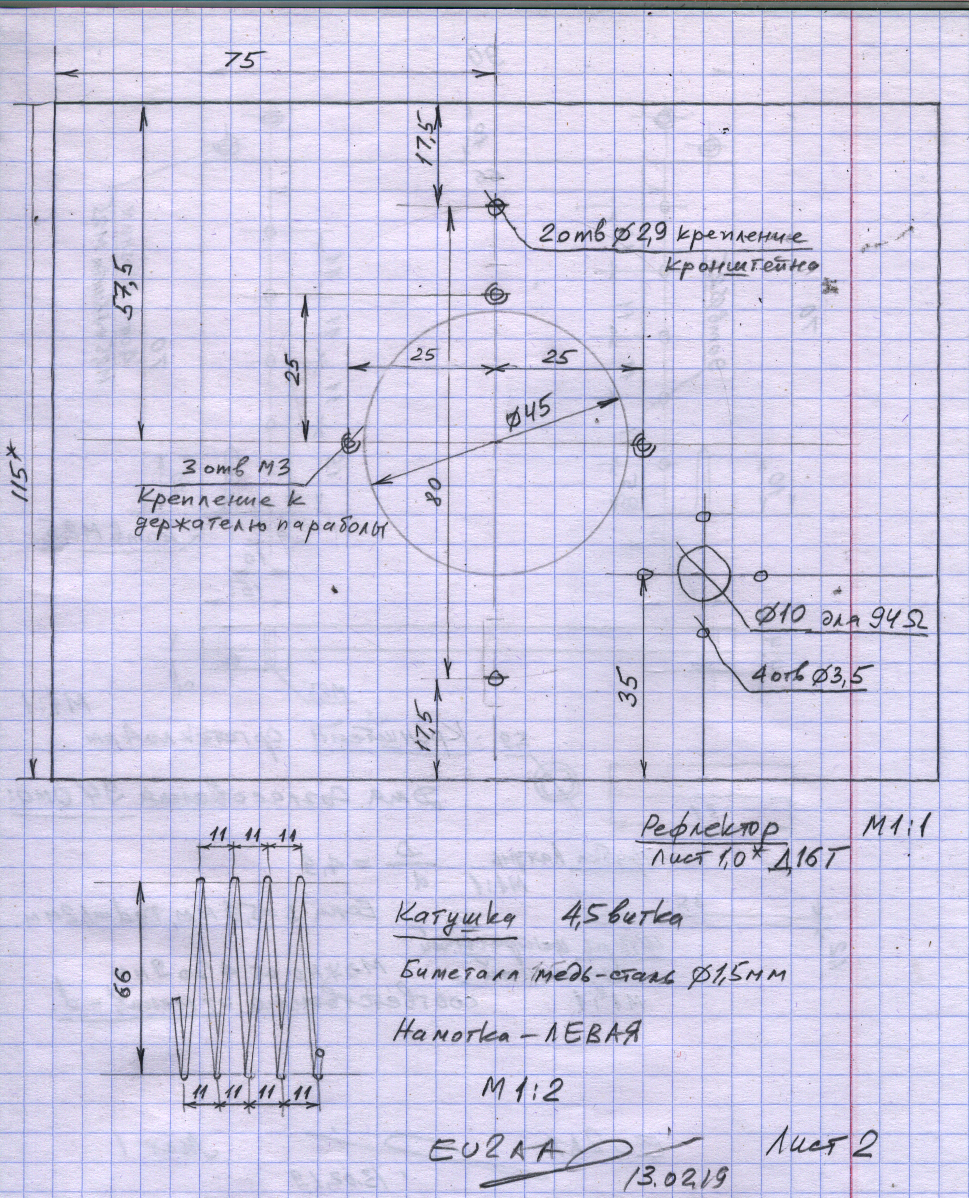 75
17,5
2 отв ⌀2,9 крепление
кронштейна
57,5
25
25
25
⌀45
115*
3 отв М3
Крепление к
держателю параболы
80
⌀10 для 94Ω
4 отв ⌀3,5
35
17,5
Рефлектор М1:1
Лист 1,0* Д16Т
11 11 11
Катушка 4,5 витка
66
Биметалл медь-сталь ⌀1,5мм
Намотка – ЛЕВАЯ
11 11 11 11
М 1:2
EU2AA
Лист 2
13.02.19